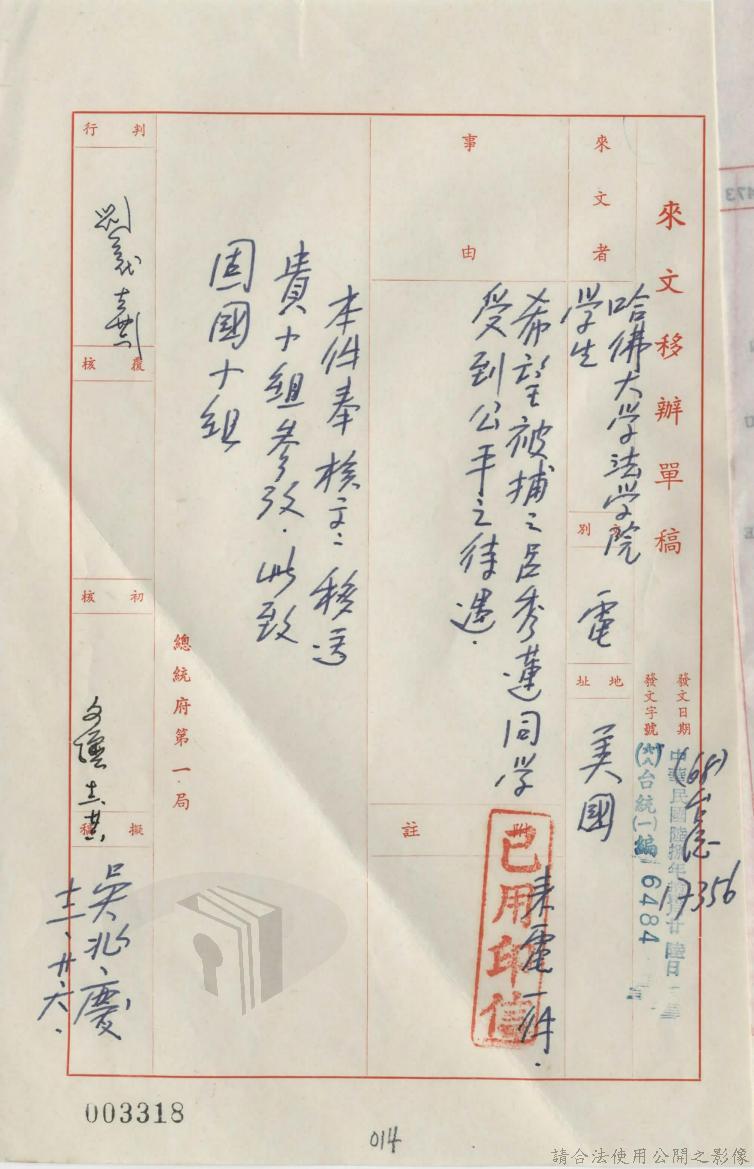 來文移辦單稿
發文日期
發文字號
中華民國陸捌年拾貳月廿陸日
(68)台統(一)編 6484
17356
來文者
哈佛大学法学院
学生
文別
電
地址
美國
事由
希望被捕之呂秀蓮同学
受到公平之待遇.
附註
來電一件.
已用印信
本件奉核交移
貴小組參攷.此致
固國小組
總統府第一局
判行
覆核
初核
擬稿
吳兆慶
十二、廿六.
003318
014
請合法使用公開之影像